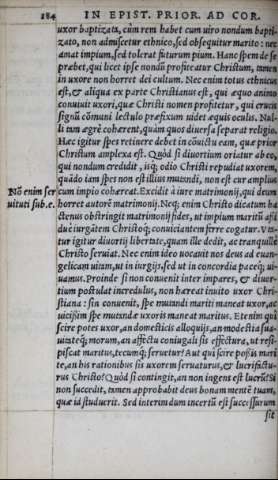 184 IN EPIST. PRIOR. AD COR.
uxor baptizata, cum rem habet cum uiro nondum bapti-
zato, non admiscetur ethnico, sed obsequitur marito: nec
amat impium, sed tolerat futurum pium. Hanc spem de se
præbet, qui licet ipse nondū profiteatur Christum, tamen
in uxore non horret dei cultum. Nec enim totus ethnicus
est, & aliqua ex parte Christianus est, qui æquo animo
conuiuit uxori, quæ Christi nomen profitetur, qui crucis
signū cōmuni lectulo præfixum uidet æquis oculis. Nul-
li tam ægrè cohærent, quàm quos diuersa separat religio.
Hæc igitur spes retinere debet in cōuictu eam, quæ prior
Christum amplexa est. Quòd si diuortium oriatur ab eo,
qui nondum credidit, isq́; odio Christi repudiat uxorem,
quādo iam spes non est illius mutandi, non est cur amplius
Nō enim ser cum impio cohæreat. Excidit à iure matrimonij, qui deum
uituti sub.e. horret autorē matrimonij. Neq; enim Christo dicatum ha
ctenus obstringit matrimonij fides, ut impium maritū ad
duc iurgātem Christoq́; conuiciantem ferre cogatur. V
tur igitur diuortij libertate, quam ille dedit, ac tranquillè
Christo seruiat. Nec enim ideo uocauit nos deus ad euan-
gelicam uitam, ut in iurgijs, sed ut in concordia paceq́; ui-
uamus. Proinde si non conuenit inter impares, & diuor-
tium postulat incredulus, non hæreat inuito uxor Chri-
stiana: sin conuenit, spe mutandi mariti maneat uxor, ac
uicissim spe mutandæ uxoris maneat maritus. Etenim quî
scire potes uxor, an domesticis alloquijs, an modestia sua-
uitateq́; morum, an affectu coniugali sis effectura, ut resi-
piscat maritus, tecumq́; seruetur? Aut quî scire possis mari
te, an his rationibus sis uxorem seruaturus, & lucrifactu-
rus Christo? Quòd si contingit, an non ingens est lucrū? Si
non succedit, tamen approbabit deus bonam mentē tuam,
quæ id studuerit. Sed interim dum incertū est successurum
sit